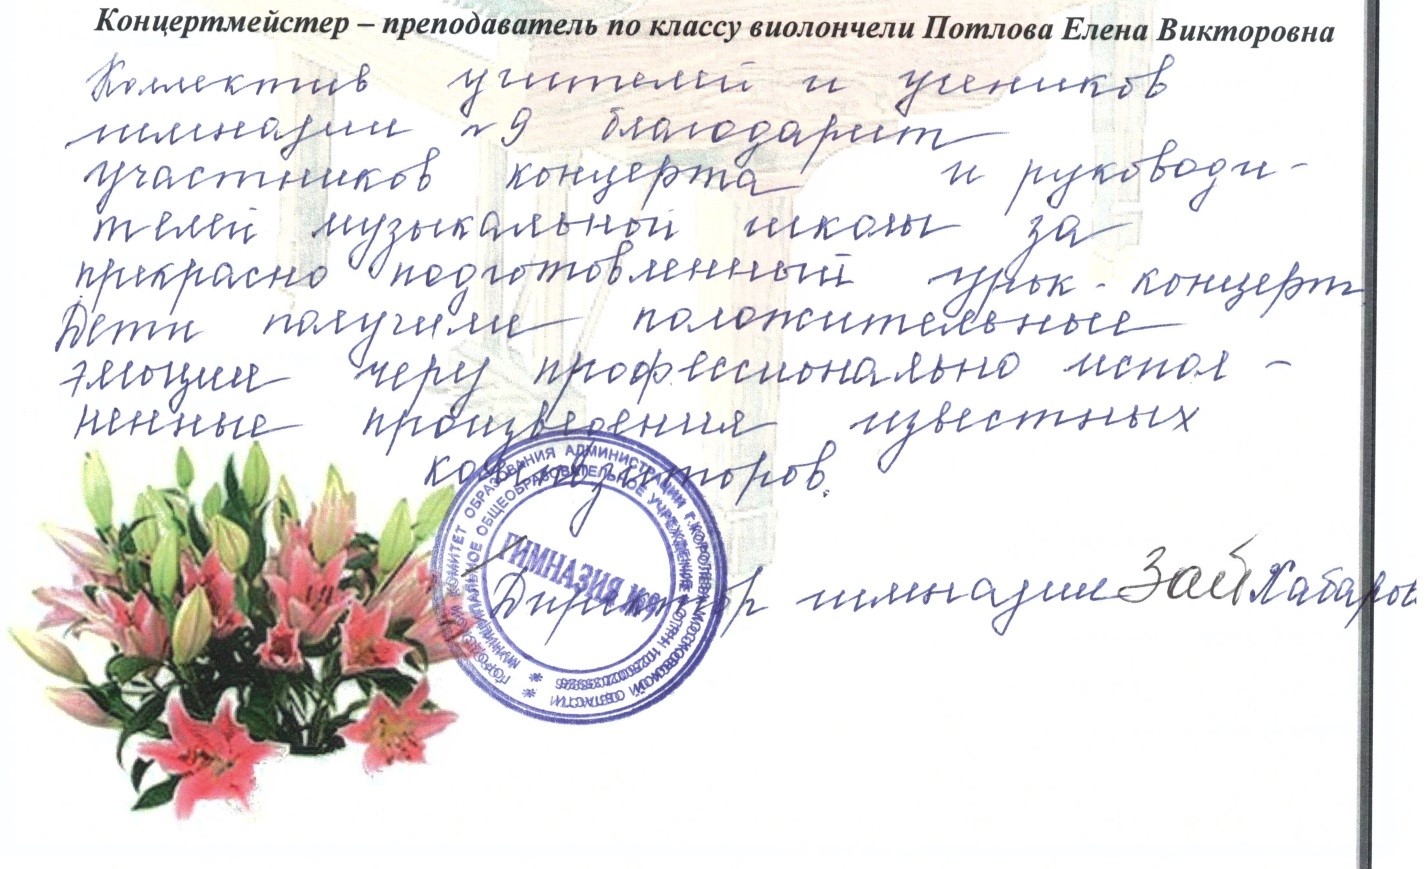 Концертмейстер – преподаватель по классу виолончели Потлова Елена Викторовна
Коллектив учителей и учеников
гимназии №9 благодарит
участников концерта и руководи-
телей музыкальной школы за
прекрасно подготовленный урок-концерт
Дети получили положительные
эмоции через профессионально испол-
ненные произведения известных
композиторов.
Директор гимназии Хабаров
ГОРОДСКОЙ КОМИТЕТ ОБРАЗОВАНИЯ АДМИНИСТРАЦИИ Г.КОРОЛЕВА МОСКОВСКОЙ ОБЛАСТИ
МУНИЦИПАЛЬНОЕ ОБЩЕОБРАЗОВАТЕЛЬНОЕ УЧРЕЖДЕНИЕ
ГИМНАЗИЯ №9